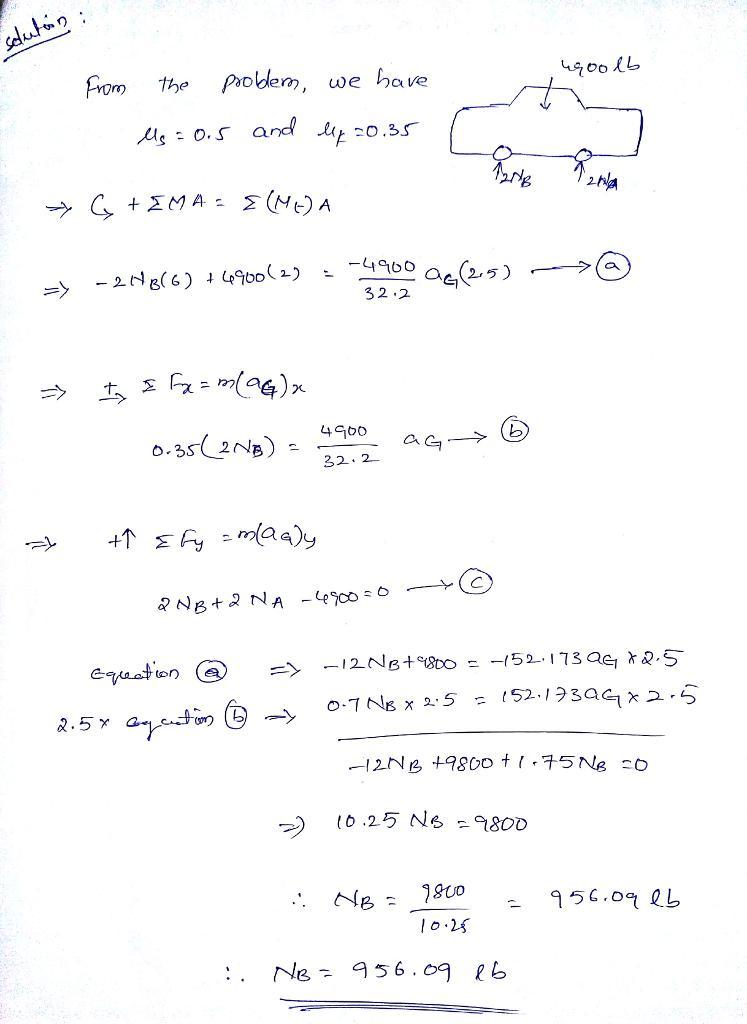 solution :
4900 lb
From the problem, we have
μs = 0.5 and μk = 0.35
2NB 2NA
⇒ ↺ + ΣMA = Σ(Mk)A
⇒ -2NB(6) + 4900(2) = -4900/32.2 aG(2.5) → (a)
⇒ +→ ΣFx = m(aG)x
0.35(2NB) = 4900/32.2 aG → (b)
⇒ +↑ ΣFy = m(aG)y
2NB + 2NA - 4900 = 0 → (c)
Equation (a) ⇒ -12NB + 9800 = -152.173aG x 2.5
2.5 x equation (b) ⇒ 0.7NB x 2.5 = 152.173aG x 2.5
-12NB + 9800 + 1.75NB = 0
⇒ 10.25 NB = 9800
∴ NB = 9800/10.25 = 956.09 lb
∴ NB = 956.09 lb